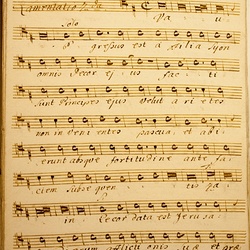 Lamentatio 2. da
solo Va u
Et e greſsus est a filia Syon
omnis decor ejus fac ti
sunt Principes ejus velut a ri etes
non in veni entes pascua et abi
erunt absque fortitudine ante fa
ciem subse quen tis
in Recordata est Jerusa
afflicti onis